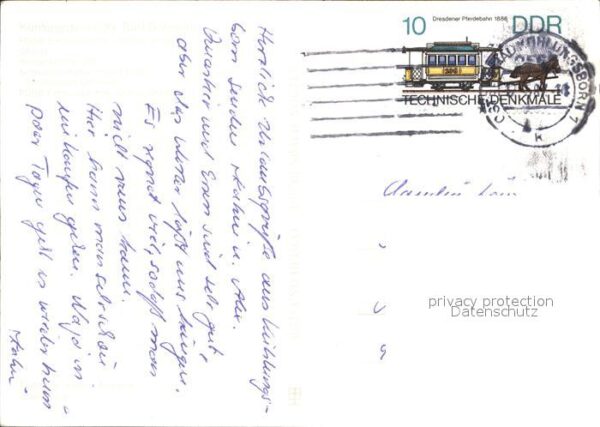 10
Dresdener Pferdebahn 1886
DDR
TECHNISCHE DENKMALE
KÜHLUNGSBORN 1
k
Herzlich Urlaubsgrüße aus Kühlungs-
born senden Katrin u. Alex.
Quartier und Essen sind sehr gut,
aber das Wetter läßt uns hängen.
Es regnet viel, sodaß man
nicht raus kann.
Hier kann man sehr schön
einkaufen gehen. Naja in
paar Tagen geht es wieder heim
privacy protection
Datenschutz